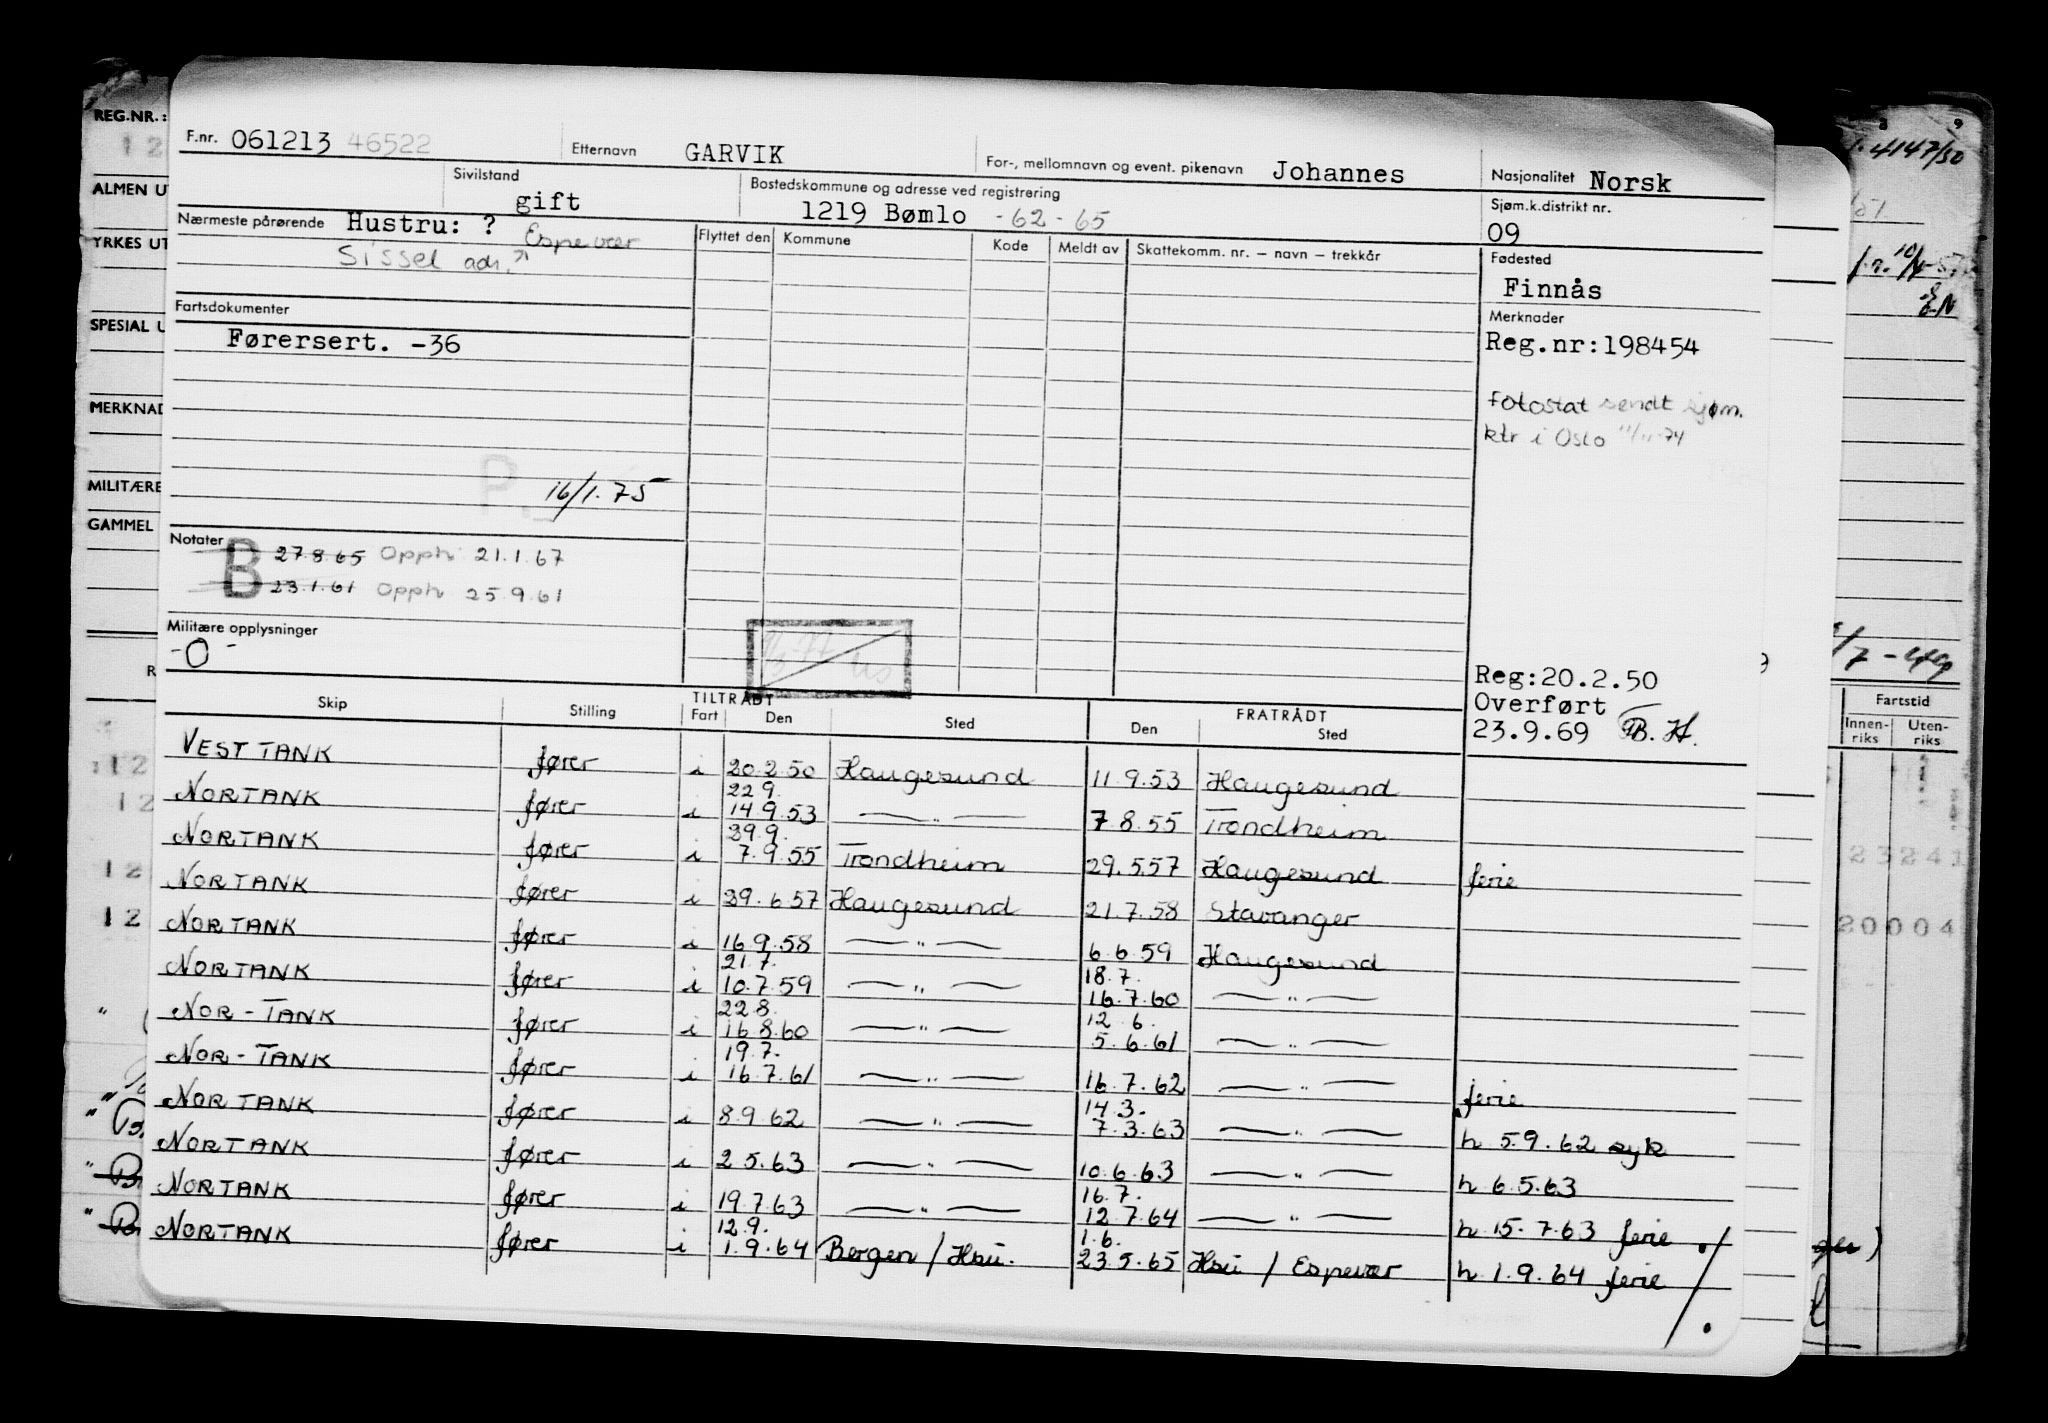 F.nr. 061213 46522 Etternavn GARVIK For-, mellomnavn og event. pikenavn Johannes Nasjonalitet Norsk
Sivilstand gift Bostedskommune og adresse ved registrering 1219 Bømlo -62-65 Sjøm.k.distrikt nr. 09
Nærmeste pårørende Hustru: ? Espevær
Sissel adr.
Flyttet den Kommune Kode Meldt av Skattekomm. nr. – navn – trekkår
Fødested
Finnås
Fartsdokumenter
Førersert. -36
Merknader
Reg.nr:198454
fotostat sendt sjøm.
ktr i Oslo 11/11-74
P.
16/1.75
Notater
B 27.8.65 Opph. 21.1.67
23.1.61 Opph 25.9.61
Militære opplysninger
-0-
Reg:20.2.50
Overført
23.9.69 B.H.
Skip Stilling TILTRÅDT Fart Den Sted FRATRÅDT Den Sted
VEST TANK fører i 20.2.50 Haugesund 11.9.53 Haugesund
22.9.
NORTANK fører i 14.9.53 — " — 7.8.55 Trondheim
29.9.
NORTANK fører i 7.9.55 Trondheim 29.5.57 Haugesund ferie
NORTANK fører i 29.6.57 Haugesund 21.7.58 Stavanger
NORTANK fører i 16.9.58 — " — 6.6.59 Haugesund
21.7. 18.7.
NORTANK fører i 10.7.59 — " — 16.7.60 — " —
22.8. 12.6.
NOR-TANK fører i 16.8.60 — " — 5.6.61 — " —
19.7.
NOR-TANK fører i 16.7.61 — " — 16.7.62 — " — ferie
14.3.
NORTANK fører i 8.9.62 — " — 7.3.63 — " — h 5.9.62 syk
NORTANK fører i 2.5.63 — " — 10.6.63 — " — h 6.5.63
16.7.
NORTANK fører i 19.7.63 — " — 12.7.64 — " — h 15.7.63 ferie
12.9. 1.6.
NORTANK fører i 1.9.64 Bergen / Hsu. 23.5.65 Hsu / Espevær h 1.9.64 ferie
REG.NR.:
12
ALMEN U
YRKES UT
SPESIAL U
MERKNAD
MILITÆRE
GAMMEL
4147/50
Fartstid
Innen-
riks
Uten-
riks
23241
20004